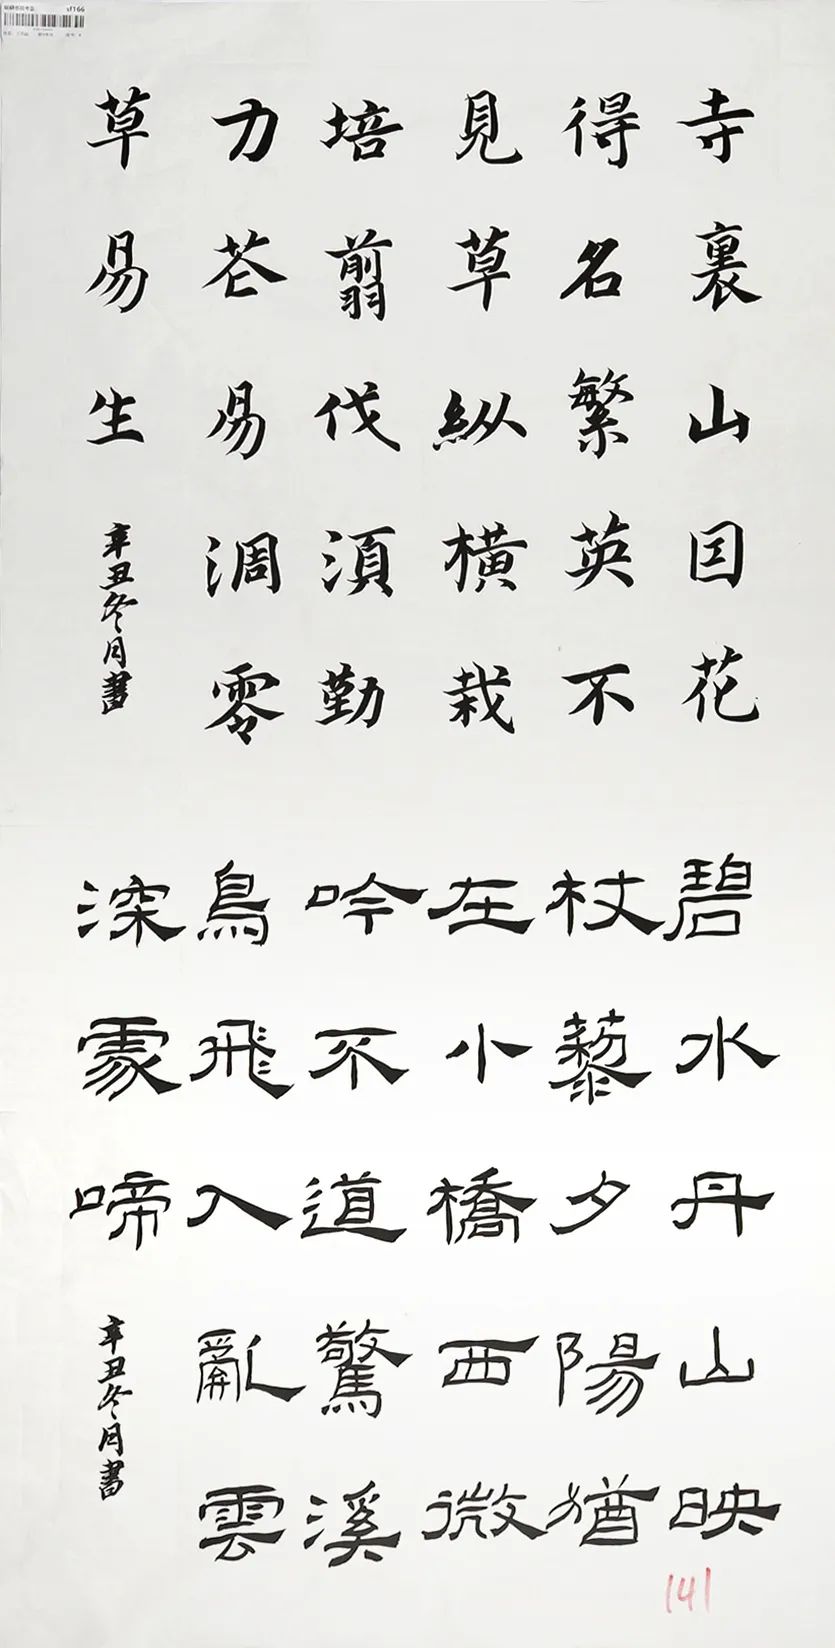 sf166
寺裏山囙花
得名繁英不
見草縱橫栽
培翦伐湏勤
力芲易淍零
草易生
辛丑冬月書
碧水丹山映
杖藜夕陽猶
在小橋西微
吟不道驚溪
鳥飛入亂雲
深處啼
辛丑冬月書
141